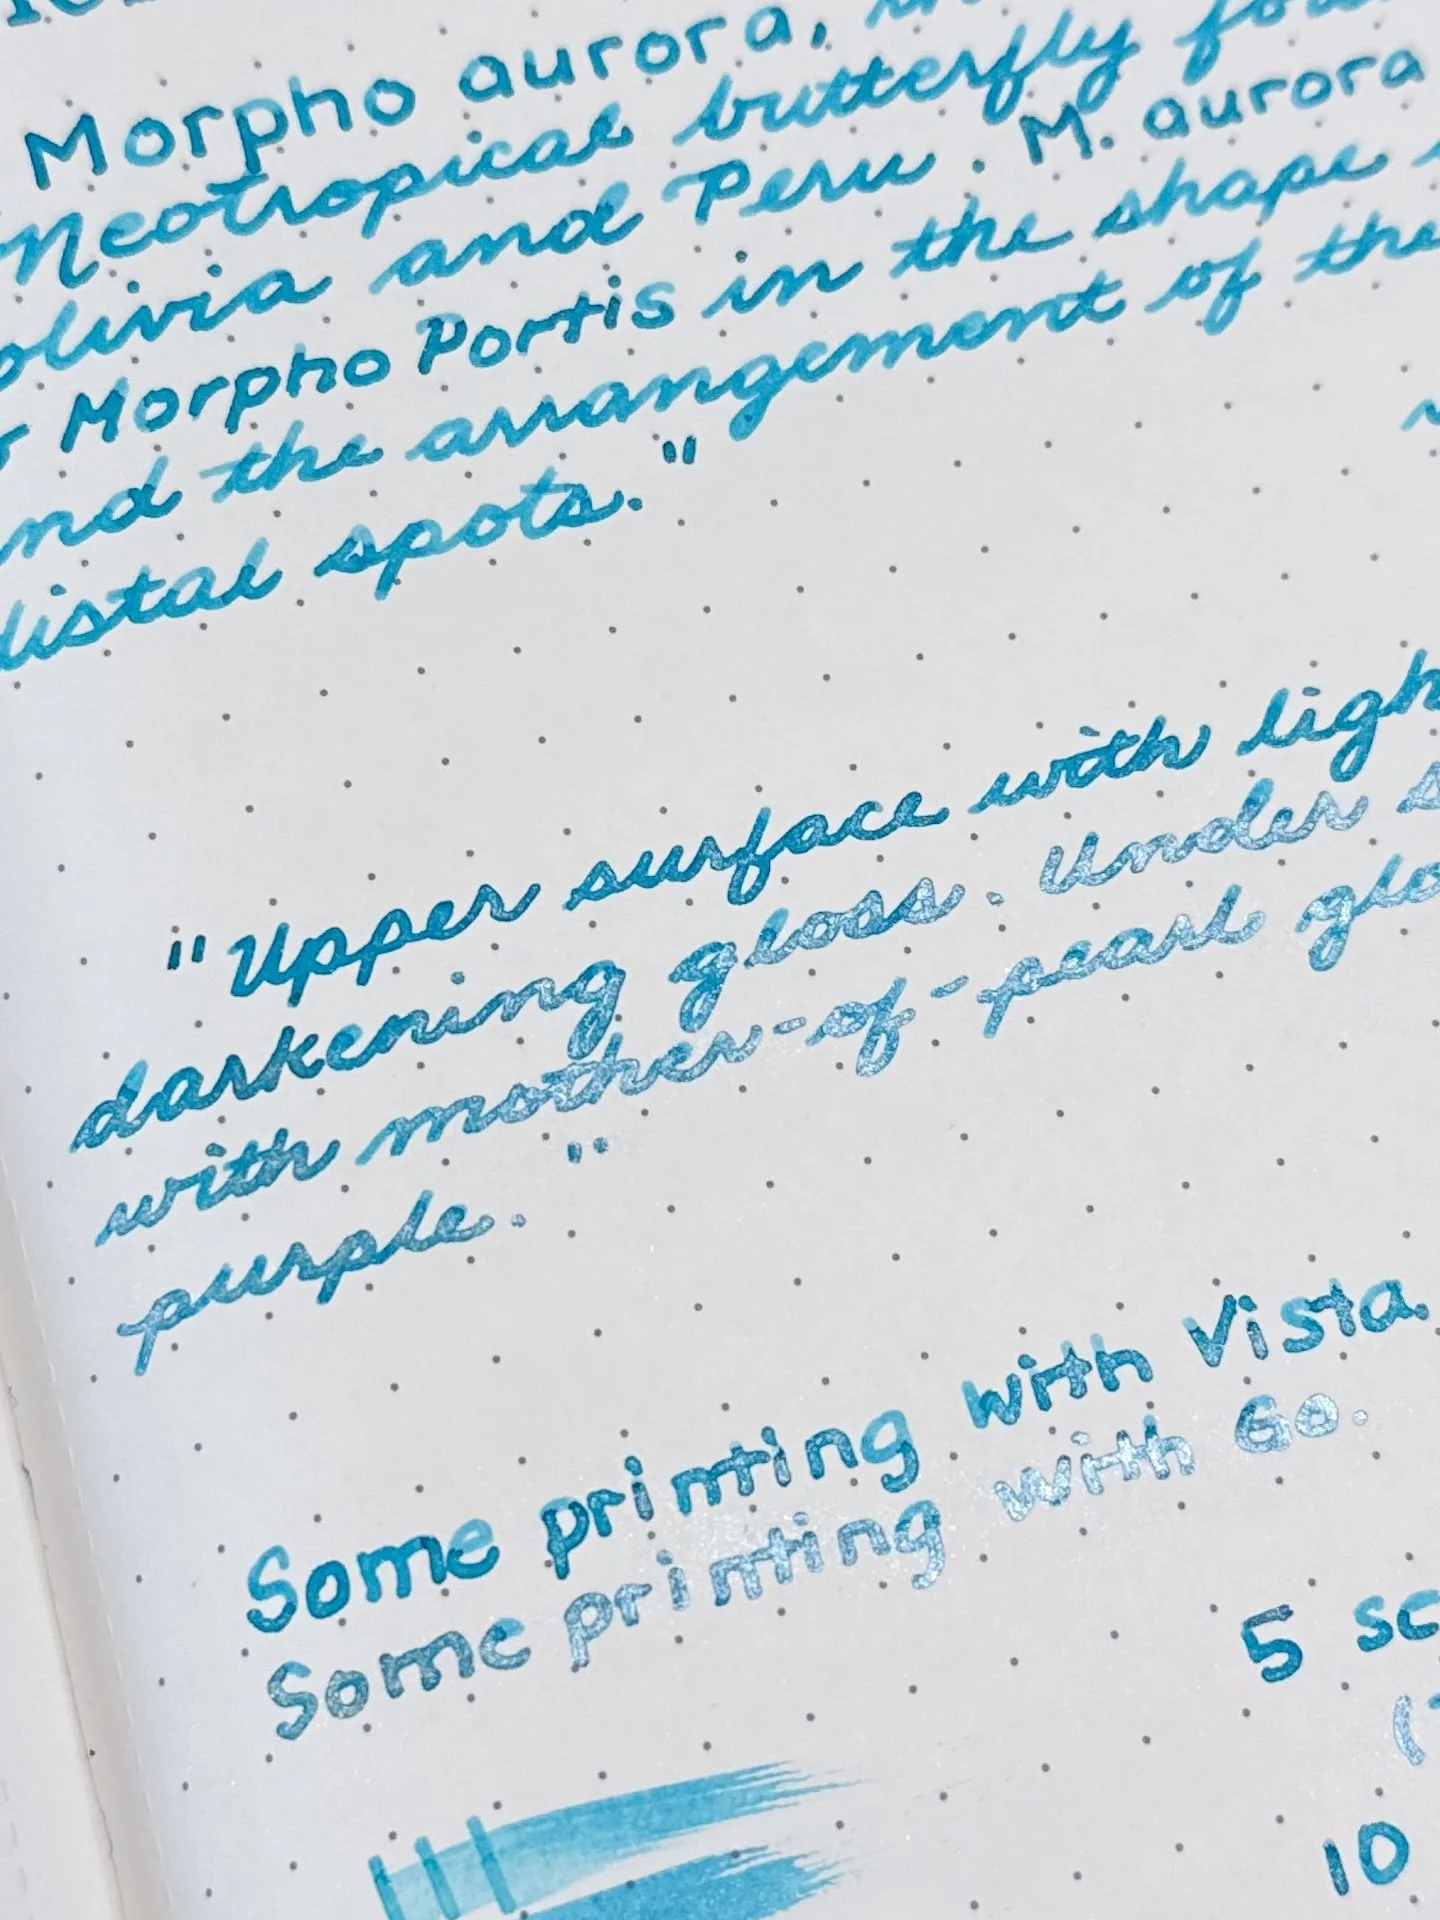 Morpho aurora,
Neotropical butterfly
and Peru. M. aurora
Morpho Portis in the shape
the arrangement of the
distal spots."
"Upper surface with
darkening gloss. Under
with mother-of-pearl
purple."
Some printing with Vista.
Some printing with Go.
5
10